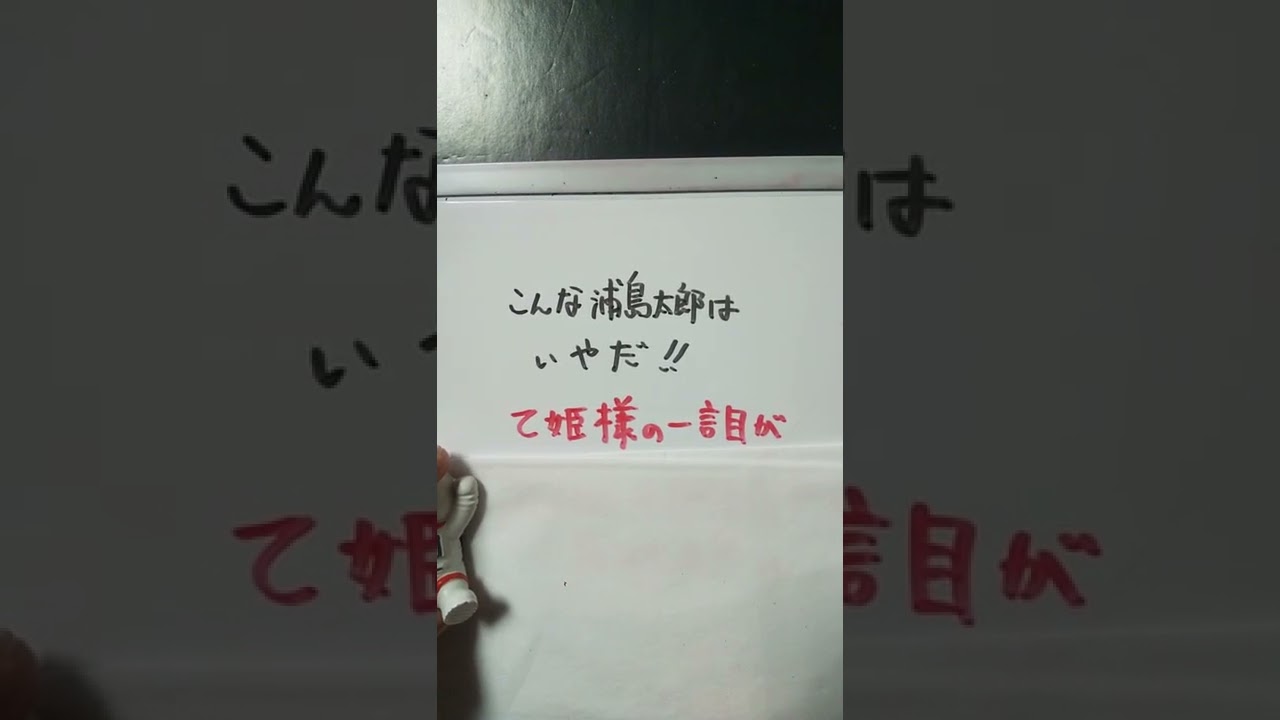 こんな浦島太郎は
いやだ!!
て姫様の一言目が